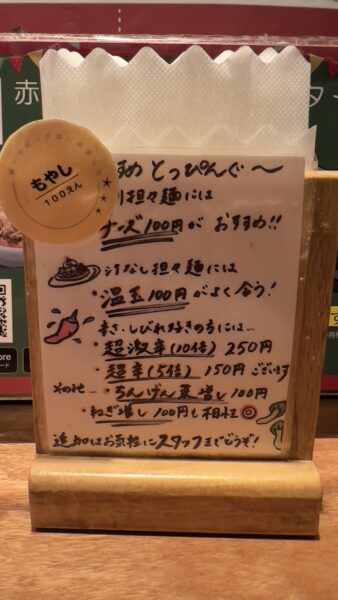 赤
ター
トッピングはじめました
もやし
100えん
すめ とっぴんぐ〜
担々麺には
チーズ100円が おすすめ!!
汁なし担々麺には
・温玉100円がよく合う!
辛さ・しびれ好きの方には…
・超激辛(10倍) 250円
・超辛(5倍) 150円ございます
その他… ・ちんげん菜増し100円
・ねぎ増し 100円も相性◎
追加はお気軽にスタッフまでどうぞ!